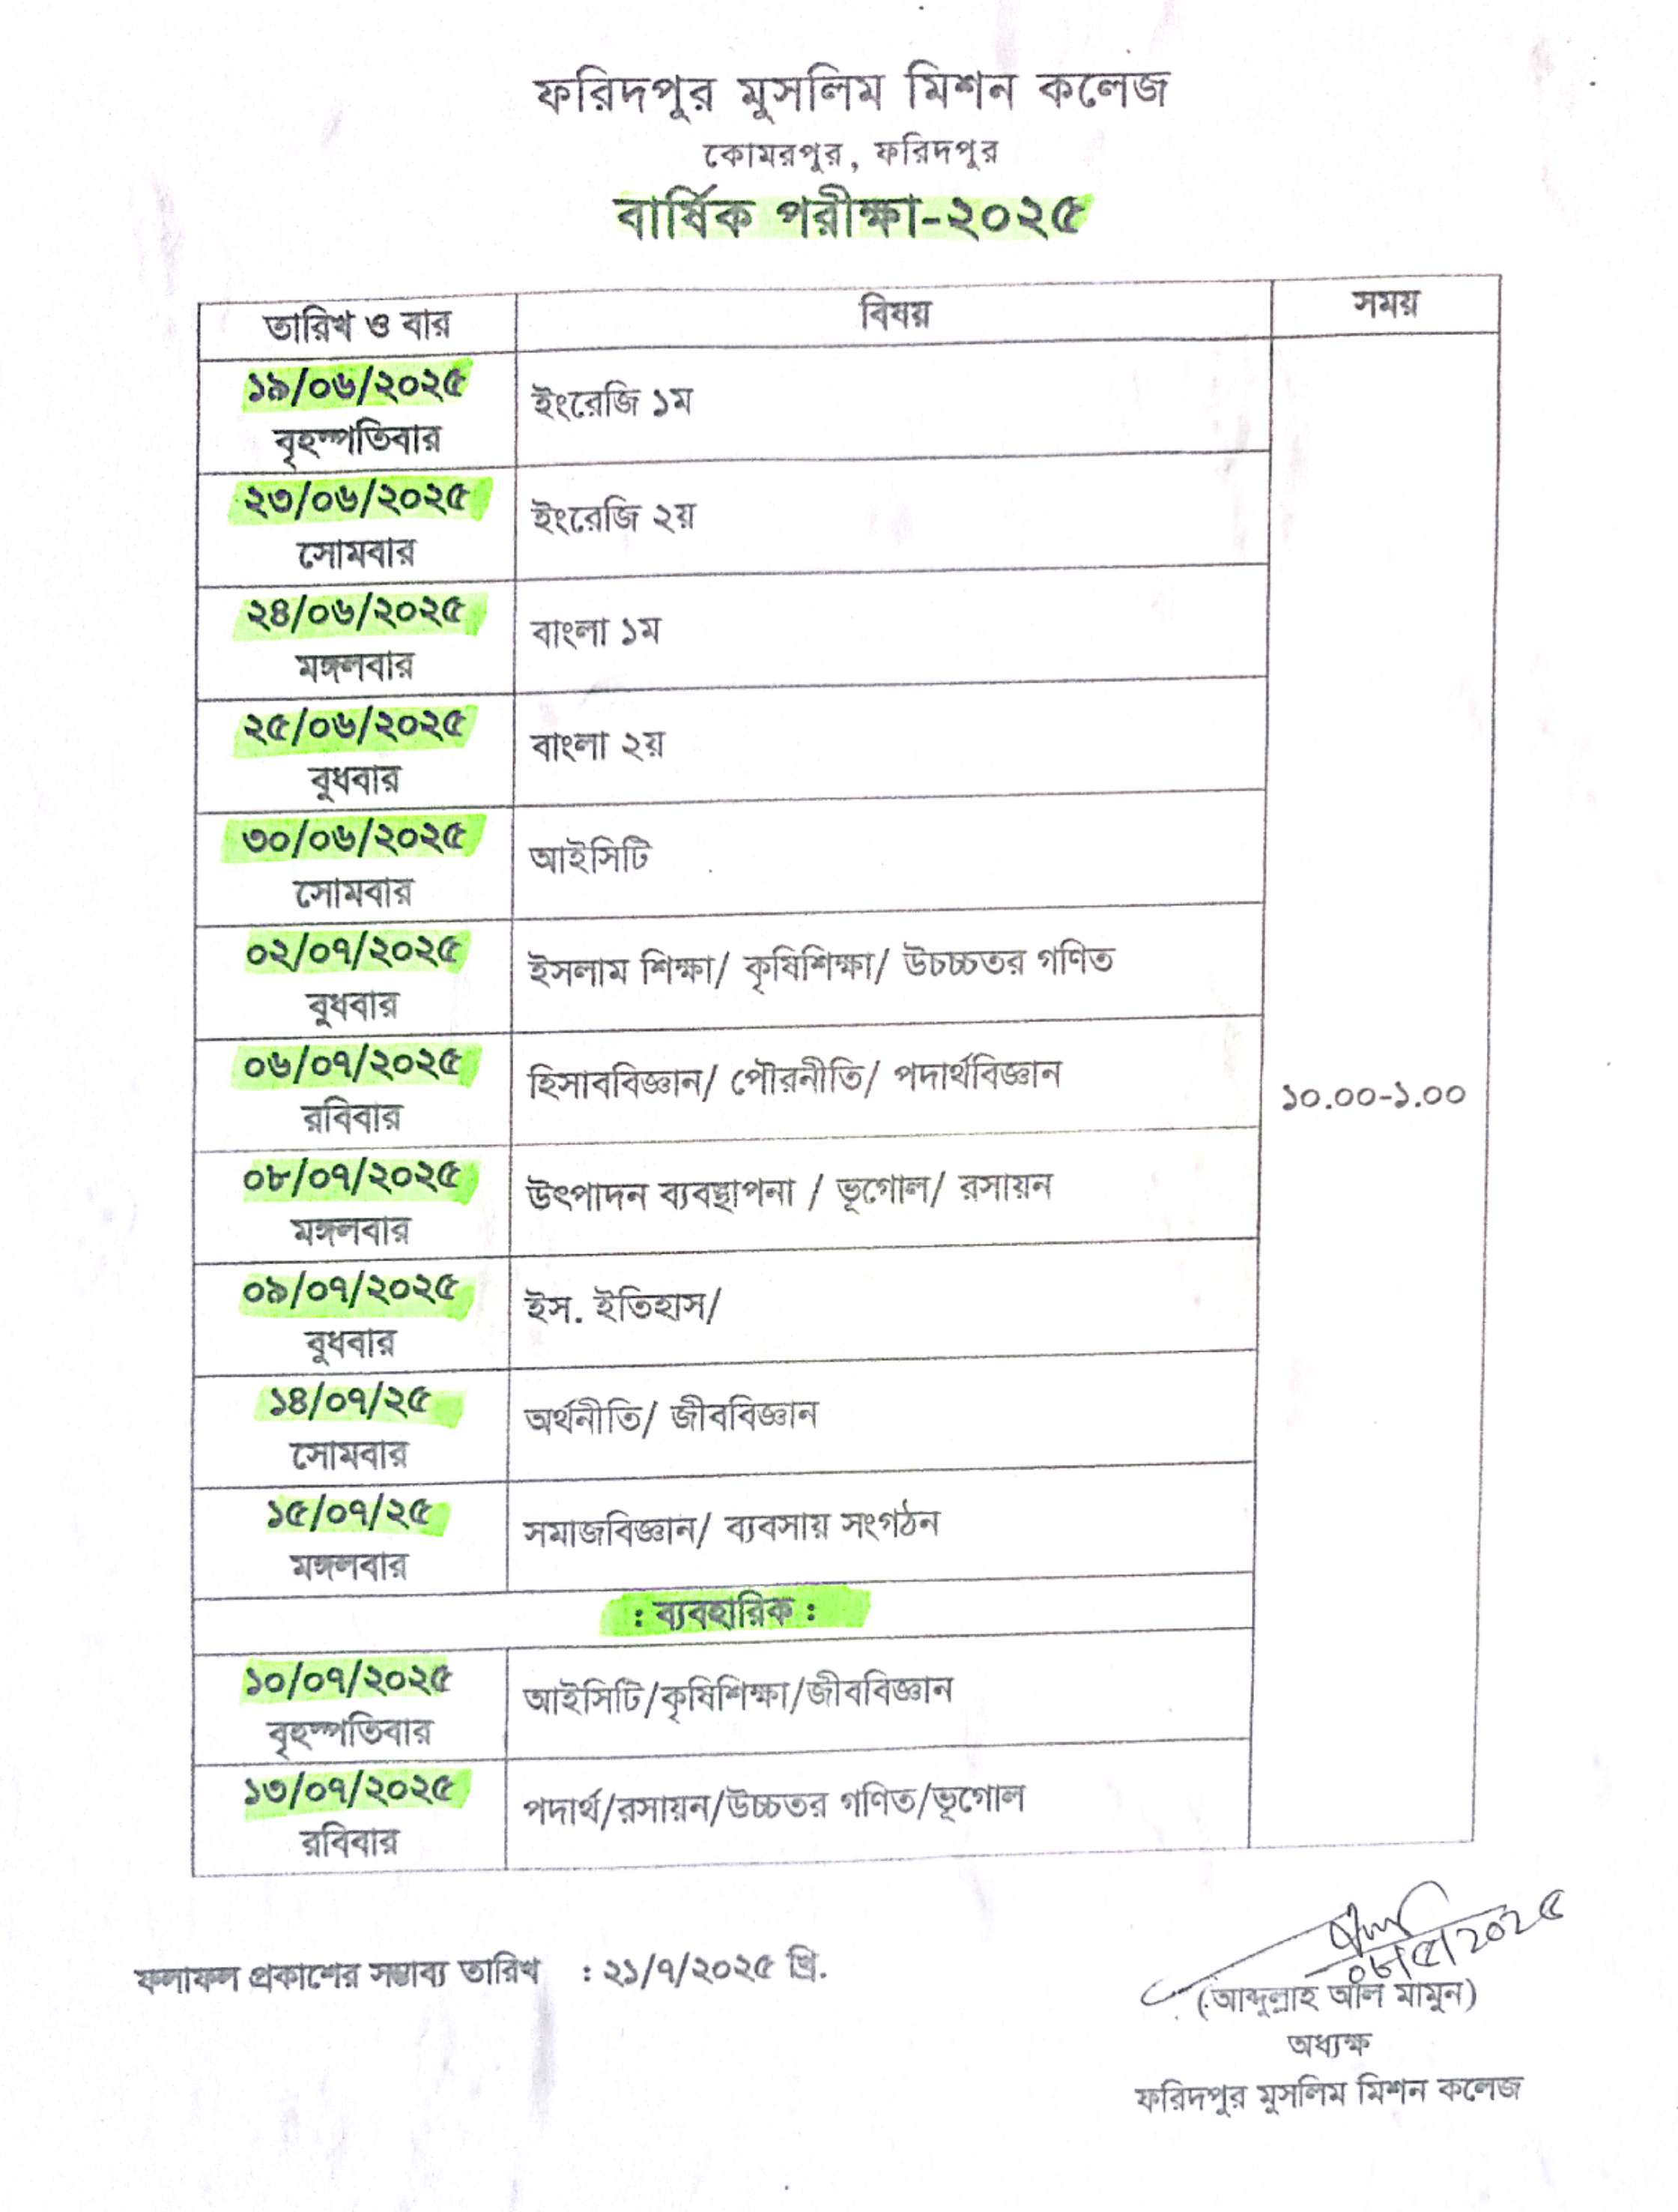 ফরিদপুর মুসলিম মিশন কলেজ
কোমরপুর, ফরিদপুর
বার্ষিক পরীক্ষা-২০২৫
তারিখ ও বার বিষয় সময়
১৯/০৬/২০২৫
বৃহস্পতিবার
ইংরেজি ১ম
২৩/০৬/২০২৫
সোমবার
ইংরেজি ২য়
২৪/০৬/২০২৫
মঙ্গলবার
বাংলা ১ম
২৫/০৬/২০২৫
বুধবার
বাংলা ২য়
৩০/০৬/২০২৫
সোমবার
আইসিটি
০২/০৭/২০২৫
বুধবার
ইসলাম শিক্ষা/ কৃষিশিক্ষা/ উচচ্চতর গণিত
০৬/০৭/২০২৫
রবিবার
হিসাববিজ্ঞান/ পৌরনীতি/ পদার্থবিজ্ঞান
১০.০০-১.০০
০৮/০৭/২০২৫
মঙ্গলবার
উৎপাদন ব্যবস্থাপনা / ভূগোল/ রসায়ন
০৯/০৭/২০২৫
বুধবার
ইস. ইতিহাস/
১৪/০৭/২৫
সোমবার
অর্থনীতি/ জীববিজ্ঞান
১৫/০৭/২৫
মঙ্গলবার
সমাজবিজ্ঞান/ ব্যবসায় সংগঠন
: ব্যবহারিক :
১০/০৭/২০২৫
বৃহস্পতিবার
আইসিটি/কৃষিশিক্ষা/জীববিজ্ঞান
১৩/০৭/২০২৫
রবিবার
পদার্থ/রসায়ন/উচ্চতর গণিত/ভূগোল
ফলাফল প্রকাশের সম্ভাব্য তারিখ : ২১/৭/২০২৫ খ্রি.
০৮/৫/২০২৫
(আব্দুল্লাহ আল মামুন)
অধ্যক্ষ
ফরিদপুর মুসলিম মিশন কলেজ